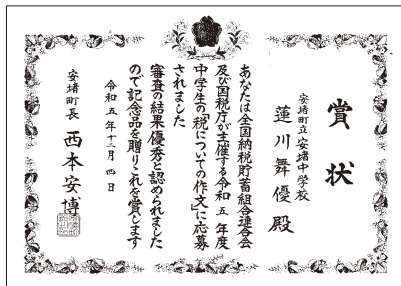 賞状
安堵町立安堵中学校
蓮川舞優殿
あなたは全国納税貯蓄組合連合会
及び国税庁が主催する令和五年度
中学生の「税についての作文」に応募
されました
審査の結果優秀と認められました
ので記念品を贈りこれを賞します
令和五年十二月四日
安堵町長 西本安博